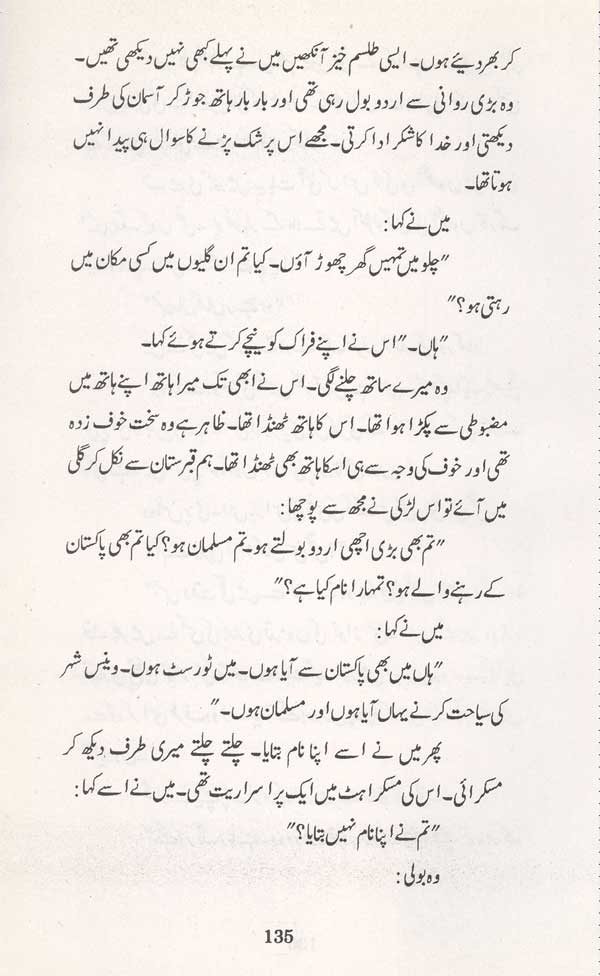 کر بھر دیئے ہوں۔ ایسی طلسم خیز آنکھیں میں نے پہلے کبھی نہیں دیکھی تھیں۔
وہ بڑی روانی سے اردو بول رہی تھی اور بار بار ہاتھ جوڑ کر آسمان کی طرف
دیکھتی اور خدا کا شکر ادا کرتی۔ مجھے اس پر شک پڑنے کا سوال ہی پیدا نہیں
ہوتا تھا۔
میں نے کہا:
"چلو میں تمہیں گھر چھوڑ آؤں۔ کیا تم ان گلیوں میں کسی مکان میں
رہتی ہو؟"
"ہاں۔" اس نے اپنے فراک کو نیچے کرتے ہوئے کہا۔
وہ میرے ساتھ چلنے لگی۔ اس نے ابھی تک میرا ہاتھ اپنے ہاتھ میں
مضبوطی سے پکڑا ہوا تھا۔ اس کا ہاتھ ٹھنڈا تھا۔ ظاہر ہے وہ سخت خوف زدہ
تھی اور خوف کی وجہ سے ہی اسکا ہاتھ بھی ٹھنڈا تھا۔ ہم قبرستان سے نکل کر گلی
میں آئے تو اس لڑکی نے مجھ سے پوچھا:
"تم بھی بڑی اچھی اردو بولتے ہو۔ تم مسلمان ہو؟ کیا تم بھی پاکستان
کے رہنے والے ہو؟ تمہارا نام کیا ہے؟"
میں نے کہا:
"ہاں میں بھی پاکستان سے آیا ہوں۔ میں ٹورسٹ ہوں۔ وینس شہر
کی سیاحت کرنے یہاں آیا ہوں اور مسلمان ہوں۔"
پھر میں نے اسے اپنا نام بتایا۔ چلتے چلتے میری طرف دیکھ کر
مسکرائی۔ اس کی مسکراہٹ میں ایک پراسراریت تھی۔ میں نے اسے کہا:
"تم نے اپنا نام نہیں بتایا؟"
وہ بولی:
135